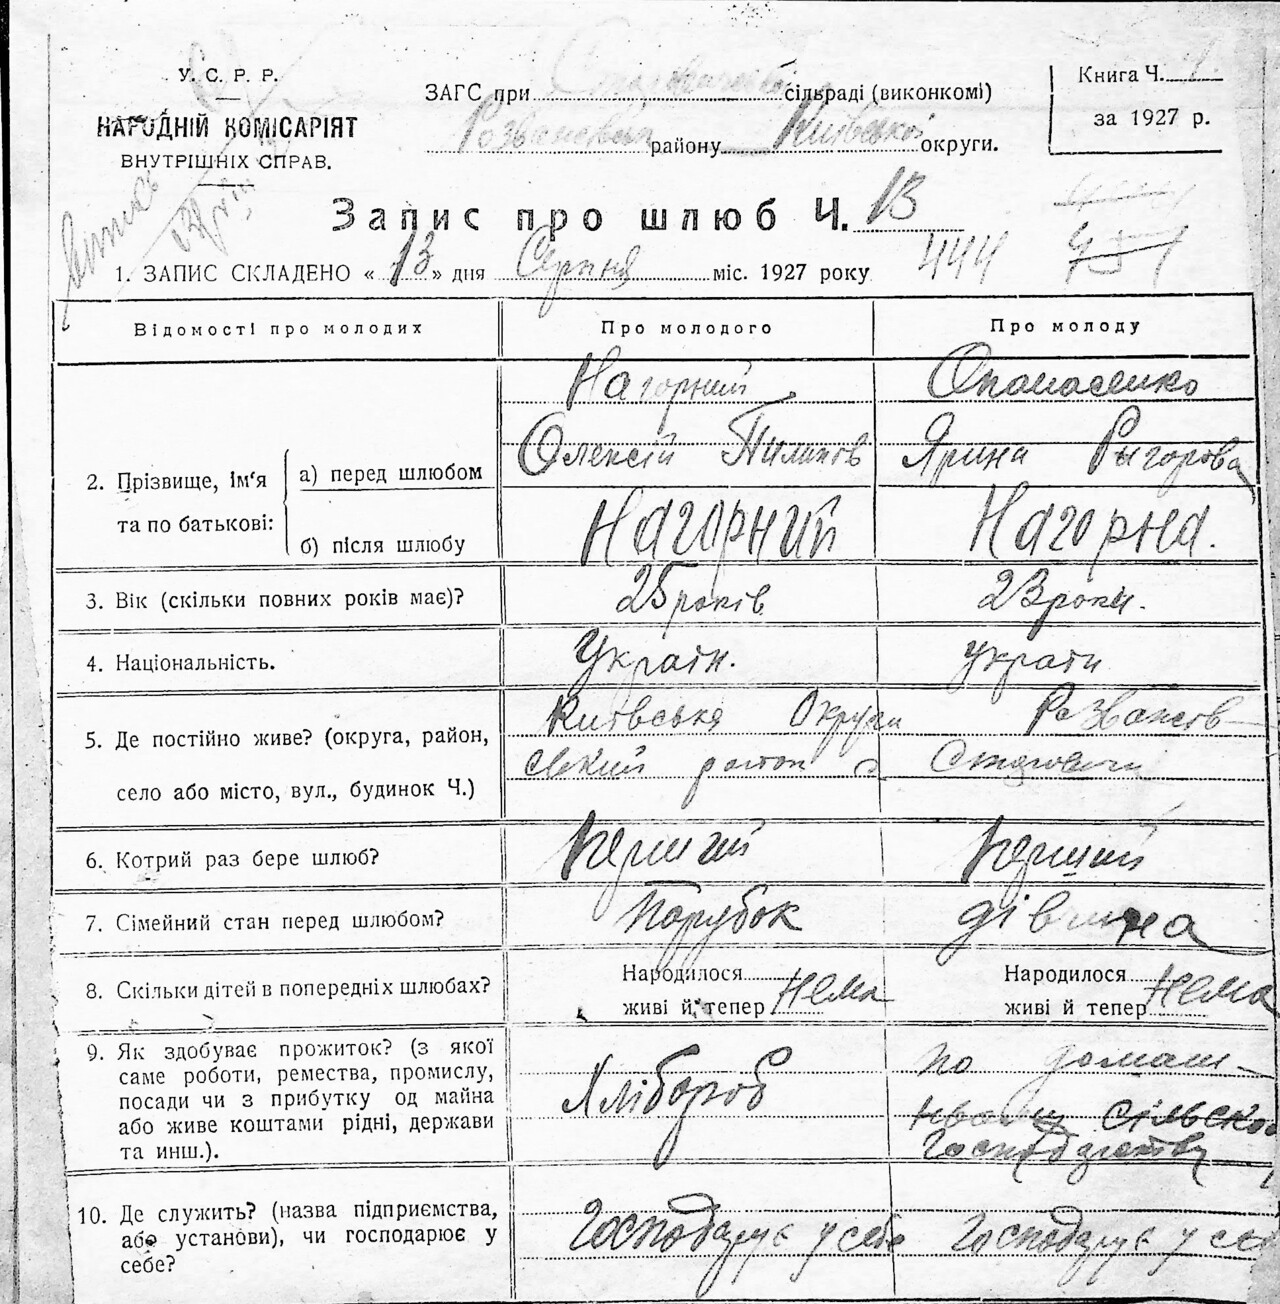 У. С. Р. Р.
НАРОДНІЙ КОМІСАРІЯТ
ВНУТРІШНІХ СПРАВ.
ЗАГС при Старовицькій сільраді (виконкомі)
Розважевськ району Київської округи.
Книга Ч.
за 1927 р.
Запис про шлюб Ч. 13
1. ЗАПИС СКЛАДЕНО « 13 » дня Серпня міс. 1927 року 444
Відомості про молодих Про молодого Про молоду
2. Прізвище, ім'я та по батькові:
а) перед шлюбом
Нагорний Опанасенко
Олексій Пилипов Ярина Рыгорова
б) після шлюбу Нагорний Нагорна.
3. Вік (скільки повних років має)? 25 років 23 роки.
4. Національність. Україн. Україн
5. Де постійно живе? (округа, район, село або місто, вул., будинок Ч.)
Київська Округи Розважів-
ський район с. Старовичи
6. Котрий раз бере шлюб? Перший Перший
7. Сімейний стан перед шлюбом? Парубок дівчина
8. Скільки дітей в попередніх шлюбах?
Народилося Народилося
живі й тепер Нема живі й тепер Нема
9. Як здобуває прожиток? (з якої
саме роботи, ремества, промислу,
посади чи з прибутку од майна
або живе коштами рідні, держави
та инш.).
Хлібороб
по домаш-
сільско
господарству
10. Де служить? (назва підприємства,
або установи), чи господарює у
себе?
Господарує у себе Господарує у себе